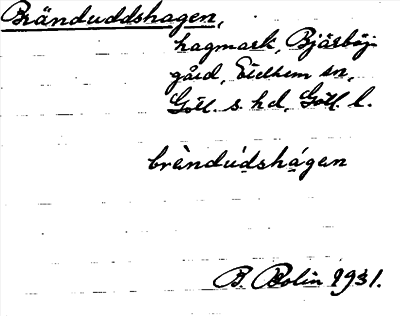 Bränduddshagen,
hagmark, Bjärböj-
gård, Eidhem sn,
Götl. s. hd, Gotl. l.
brèndúdshágen
B. Bolin 1931.